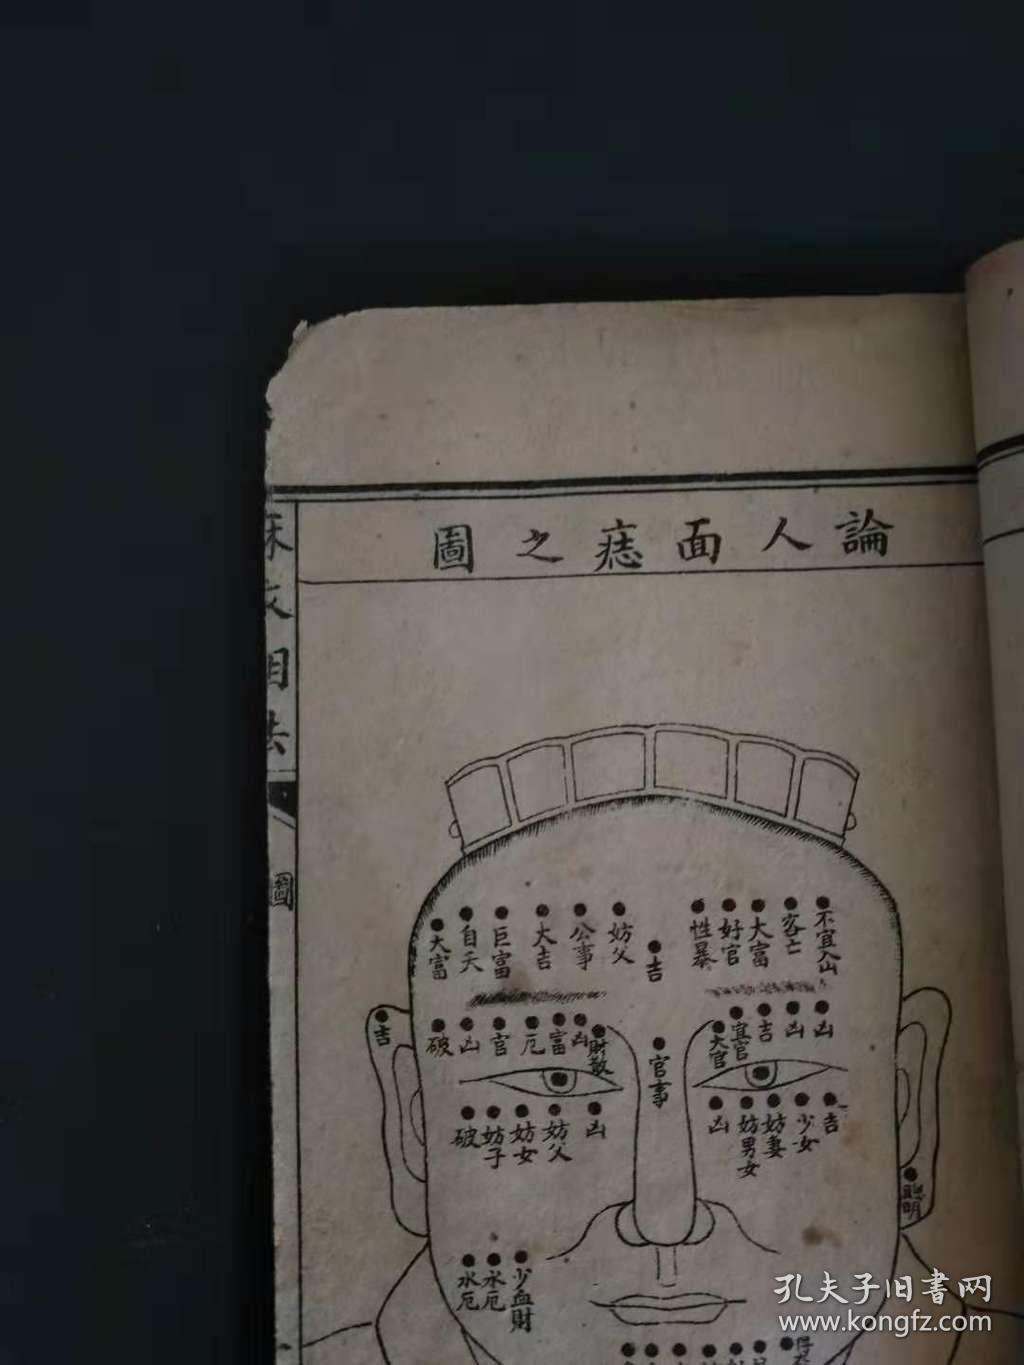 論人面痣之圖
相法
圖
不宜入山
客亡
大富
好官
性暴
吉
妨父
公事
大吉
巨富
自夭
大富
凶
凶
吉
宜官
大官
官事
財散
凶
富
厄
官
凶
破
吉
吉
少女
妨妻
妨男女
凶
凶
妨父
妨女
妨子
破
聰明
少血財
水厄
水厄
孔夫子旧书网
www.kongfz.com